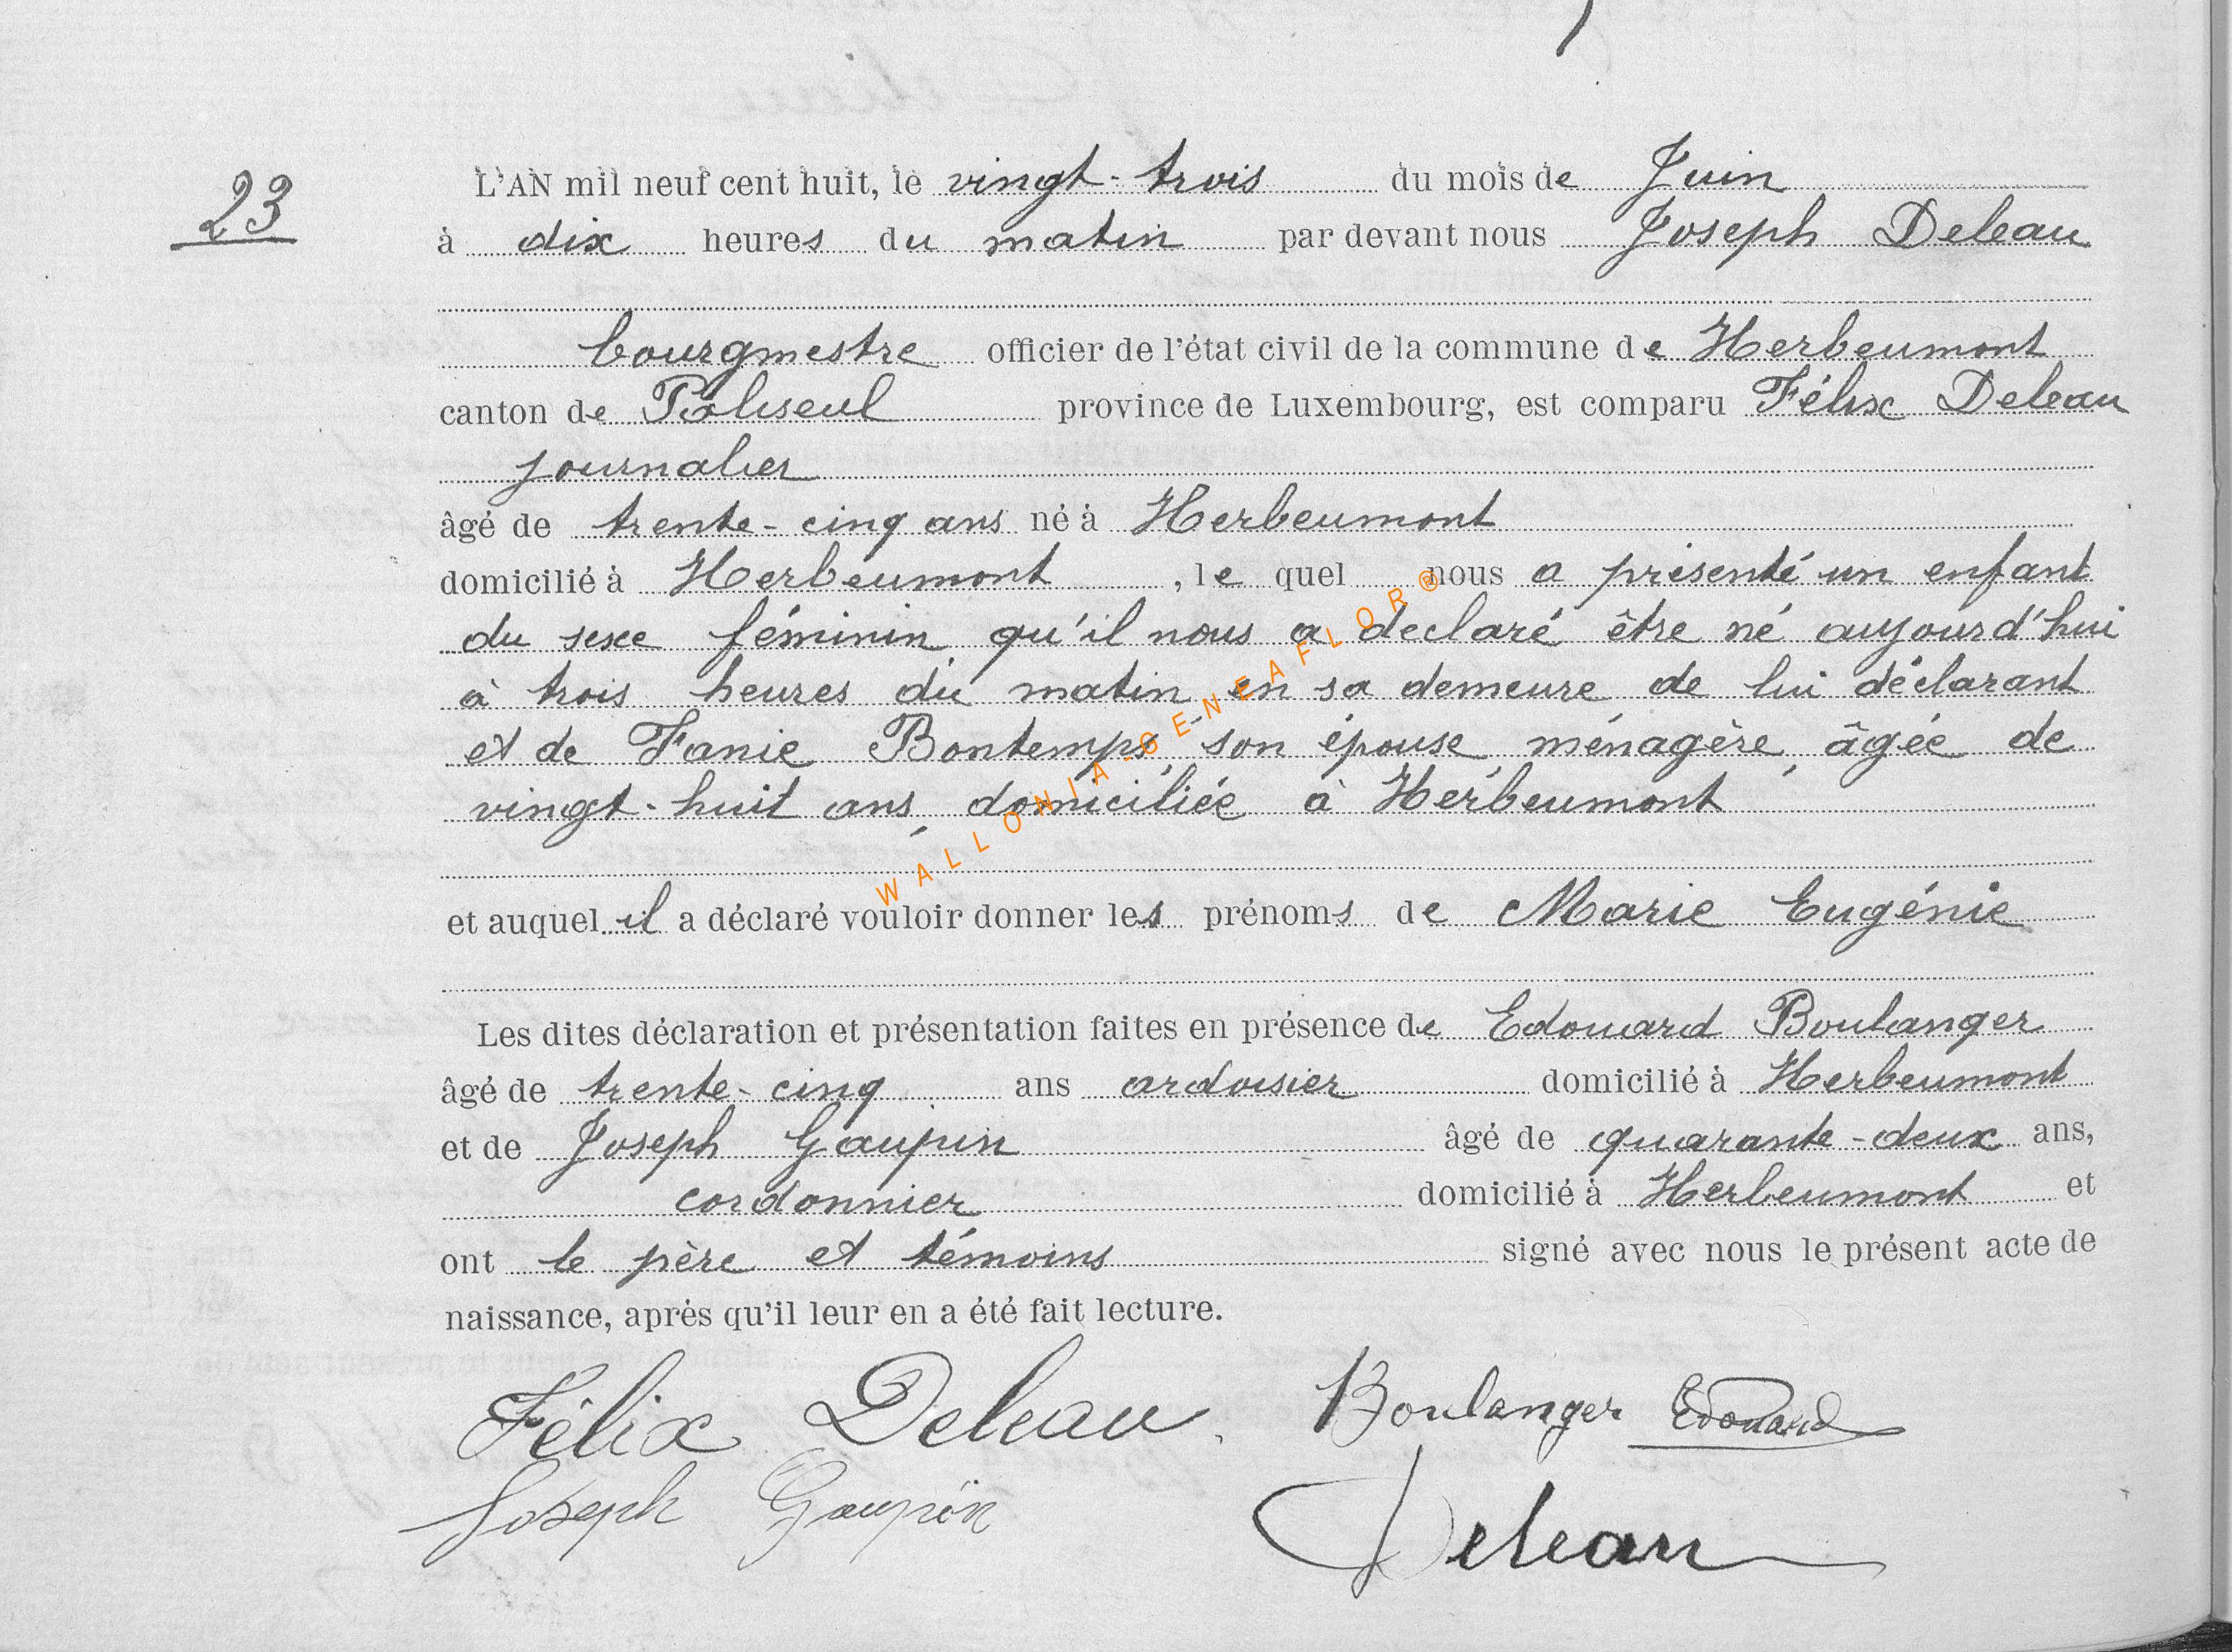 23
L'AN mil neuf cent huit, le vingt-trois du mois de Juin
à dix heures du matin par devant nous Joseph Deleau
bourgmestre officier de l'état civil de la commune de Herbeumont
canton de Paliseul province de Luxembourg, est comparu Félix Deleau
journalier
âgé de trente-cinq ans né à Herbeumont
domicilié à Herbeumont, le quel nous a présenté un enfant
du sexe féminin, qu'il nous a déclaré être né aujourd'hui
à trois heures du matin, en sa demeure de lui déclarant
et de Fanie Bontemps, son épouse, ménagère, âgée de
vingt-huit ans, domiciliée à Herbeumont
WALLONIA-GENEAFLOR®
et auquel il a déclaré vouloir donner les prénoms de Marie Eugénie
Les dites déclaration et présentation faites en présence de Edouard Boulanger
âgé de trente-cinq ans ardoisier domicilié à Herbeumont
et de Joseph Gaupin âgé de quarante-deux ans,
cordonnier domicilié à Herbeumont et
ont le père et témoins signé avec nous le présent acte de
naissance, après qu'il leur en a été fait lecture.
Félix Deleau. Boulanger Edouard
Joseph Gaupin Deleau